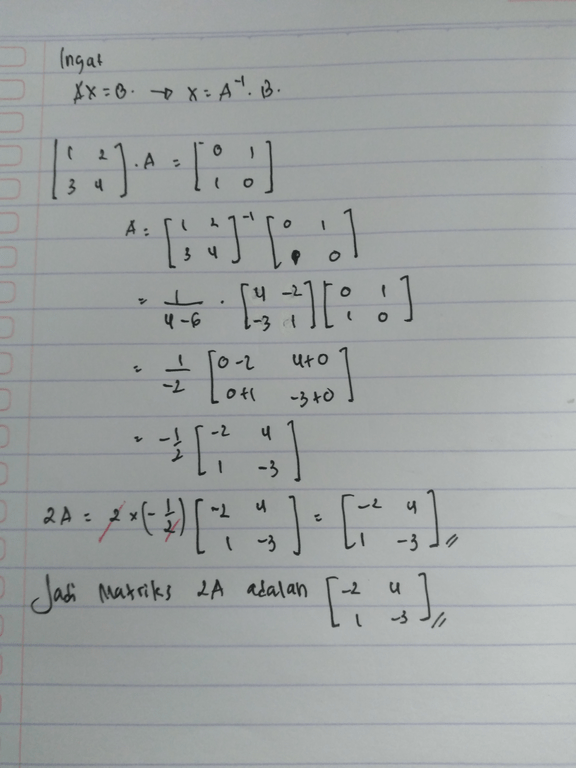 Ingat
AX = B. → X = A⁻¹. B.
[1 2; 3 4] . A = [0 1; 1 0]
A = [1 2; 3 4]⁻¹ [0 1; 1 0]
= 1/(4-6) . [4 -2; -3 1] [0 1; 1 0]
= 1/-2 [0-2 4+0; 0+1 -3+0]
= -1/2 [-2 4; 1 -3]
2A = 2 × (-1/2) [-2 4; 1 -3] = [-2 4; 1 -3] //
Jadi Matriks 2A adalah [-2 4; 1 -3] //